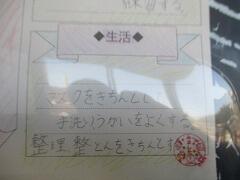 ◆生活◆
マスクをきちんとして
手洗いうがいをよくする。
整理整とんをきちんとする